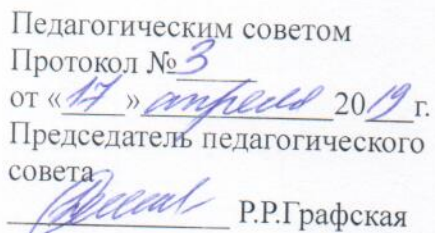 Педагогическим советом
Протокол №3
от «17» апреля 2019 г.
Председатель педагогического
совета
Р.Р.Графская